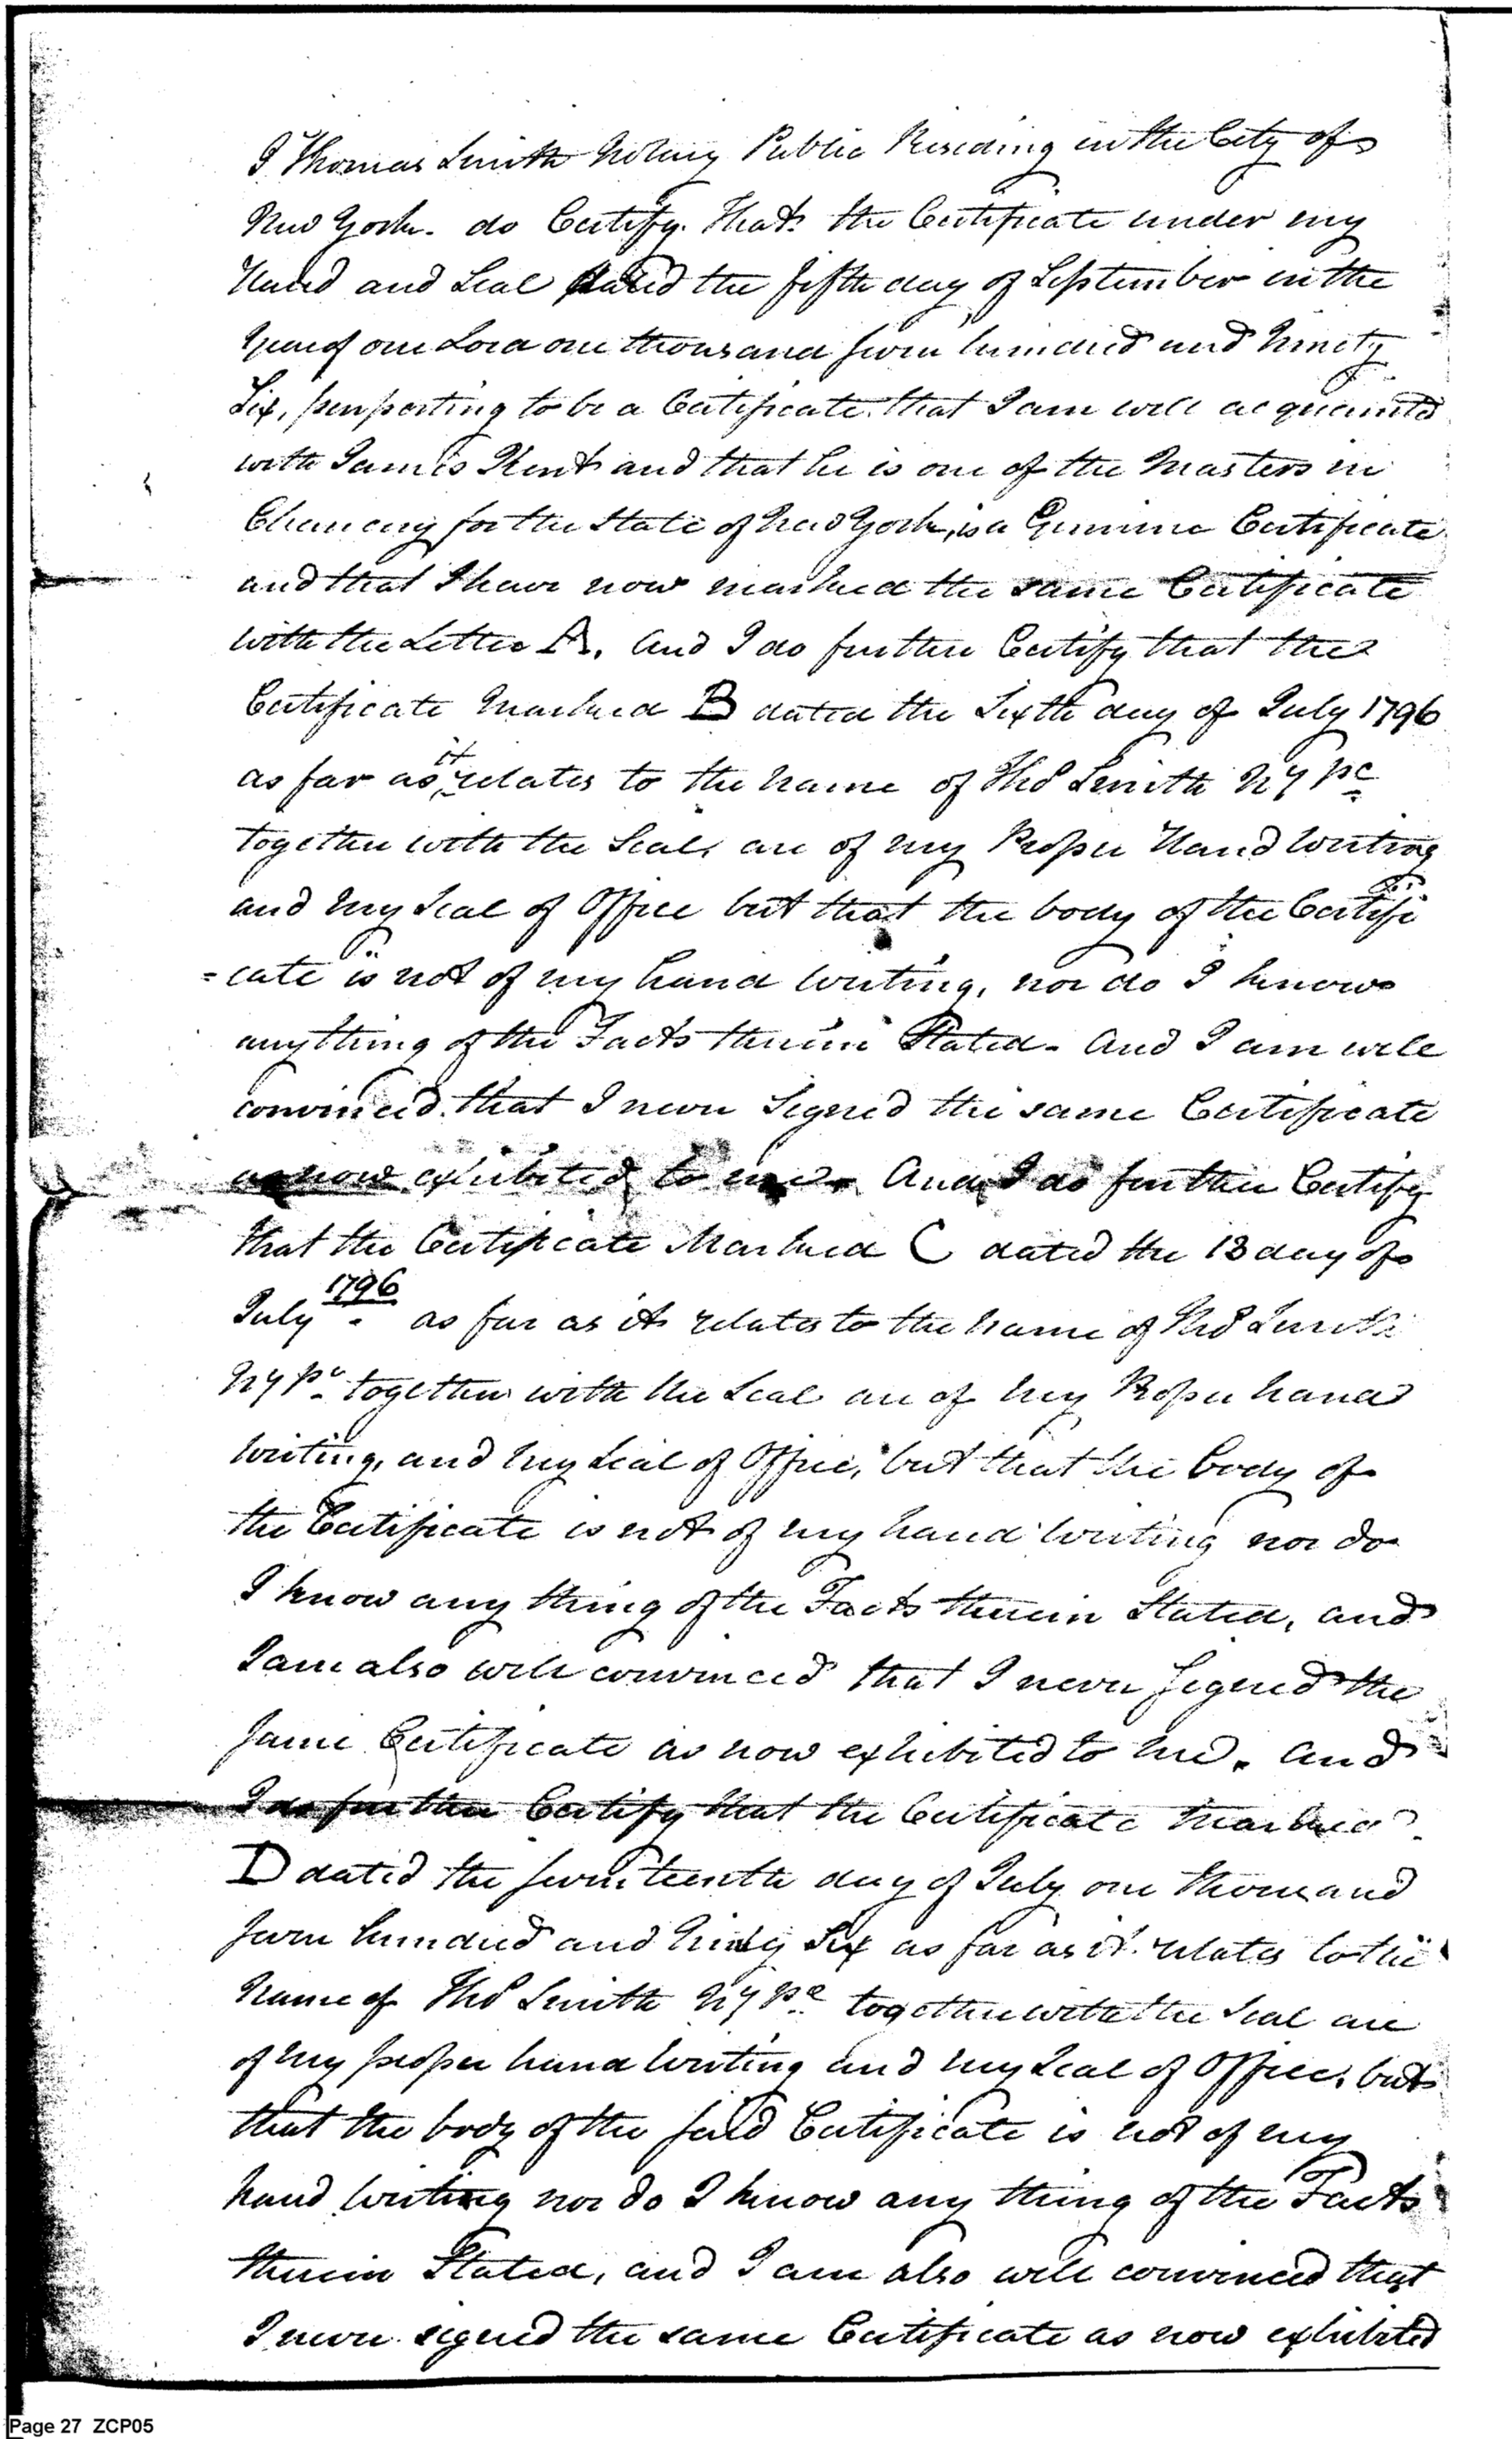 I Thomas Smith Notary Public Residing in the City of
New York. do Certify. That the Certificate under my
Hand and Seal dated the fifth day of September in the
Year of our Lord one thousand seven hundred and Ninety
Six, purporting to be a Certificate that I am well acquainted
with James Kent and that he is one of the Masters in
Chancery for the State of New York, is a Genuine Certificate
and that I have now marked the same Certificate
with the Letter A. And I do further Certify that the
Certificate Marked B dated the Sixth day of July 1796
as far as it relates to the Name of Thos Smith NY Pc
together with the Seal, are of my Proper Hand Writing
and my Seal of Office but that the body of the Certifi
=cate is not of my hand writing, nor do I know
any thing of the Facts therein Stated. And I am well
convinced that I never Signed the same Certificate
as now exhibited to me. And I do further Certify
that the Certificate Marked C dated the 13 day of
July 1796 as far as it relates to the Name of Thos Smith
NY Pc together with the Seal are of my Proper hand
writing, and my Seal of Office, but that the body of
the Certificate is not of my hand writing nor do
I know any thing of the Facts therein Stated, and
I am also well convinced that I never Signed the
same Certificate as now exhibited to me. And
I do further Certify that the Certificate Marked
D dated the seventeenth day of July one thousand
seven hundred and Ninty Six as far as it relates to the
Name of Thos Smith NY Pc together with the Seal are
of my proper hand writing and my Seal of Office, but
that the body of the said Certificate is not of my
hand writing nor do I know any thing of the Facts
therein Stated, and I am also well convinced that
I never signed the same Certificate as now exhibited
Page 27 ZCP05